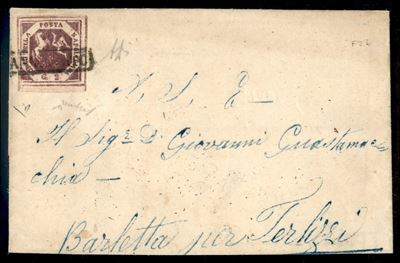 POSTA
G. 2
A
F26
N. S. E—
Il Sig.r D. Giovanni Guastama=
chia—
Barletta per Terlizzi